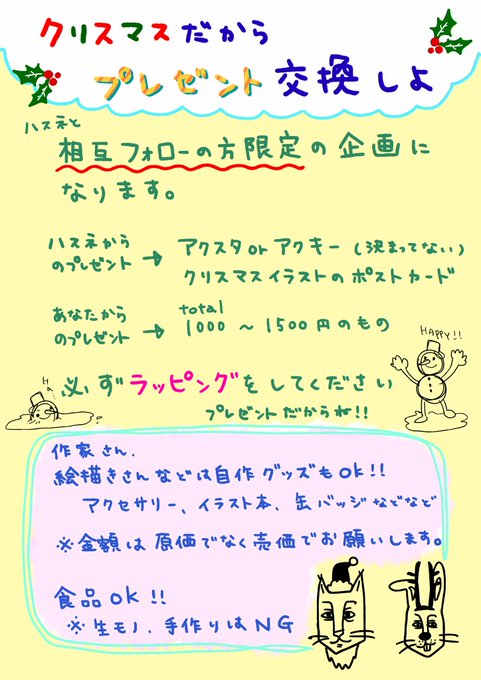 クリスマスだから
プレゼント交換しよ
ハスネと
相互フォローの方限定の企画に
なります。
ハスネから
のプレゼント → アクスタorアクキー(決まってない)
クリスマスイラストのポストカード
あなたから
のプレゼント → total
1000 〜 1500円のもの
HAPPY!!
必ずラッピングをしてください
プレゼントだからね!!
作家さん、
絵描きさんなどは自作グッズもOk!!
アクセサリー、イラスト本、缶バッジなどなど
※金額は原価でなく売価でお願いします。
食品OK!!
※生モノ、手作りはNG